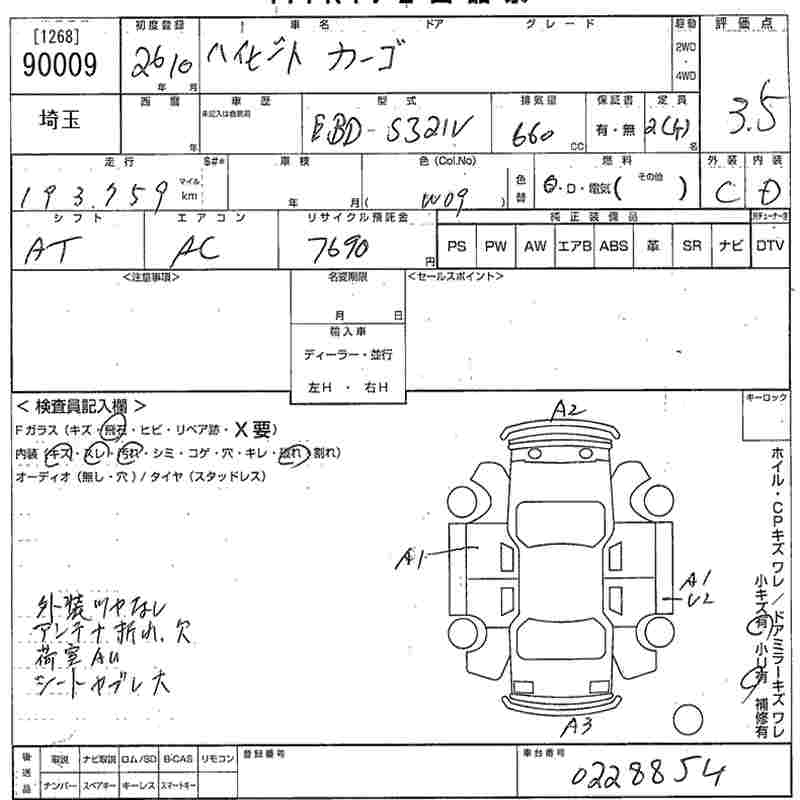 [1268]
90009
初度登録
2610
年 月
車名 ドア グレード
ハイゼット カーゴ
駆動
2WD
4WD
評価点
3.5
埼玉
西暦
年
車歴
未記入は自家用
型式
EBD-S321V
排気量
660
CC
保証書
有・無
定員
2(4)
名
走行 S#*
193,759
マイル
km
車検
年 月
色(Col.No)
( W09 )
色替
燃料
G・D・電気( その他 )
外装
C
内装
D
シフト
AT
エアコン
AC
リサイクル預託金
7690
円
純正装備品
PS PW AW エアB ABS 革 SR ナビ DTV
<注意事項>
名変期限
月 日
輸入車
ディーラー・並行
左H ・ 右H
<セールスポイント>
< 検査員記入欄 >
Fガラス (キズ・飛石・ヒビ・リペア跡・X要)
内装 (キズ・スレ・汚れ・シミ・コゲ・穴・キレ・破れ・割れ)
オーディオ (無し・穴) / タイヤ (スタッドレス)
キーロック
A2
A1
A1
U2
A3
ホイル・CPキズ ワレ / ドアミラーキズ ワレ
小キズ有 小U有 補修有
外装ツヤなし
アンテナ折れ、欠
荷室AU
シートヤブレ大
後送品
取説 ナビ取説 ロム/SD B-CAS リモコン
ナンバー スペアキー キーレス スマートキー
登録番号
車台番号
0228854